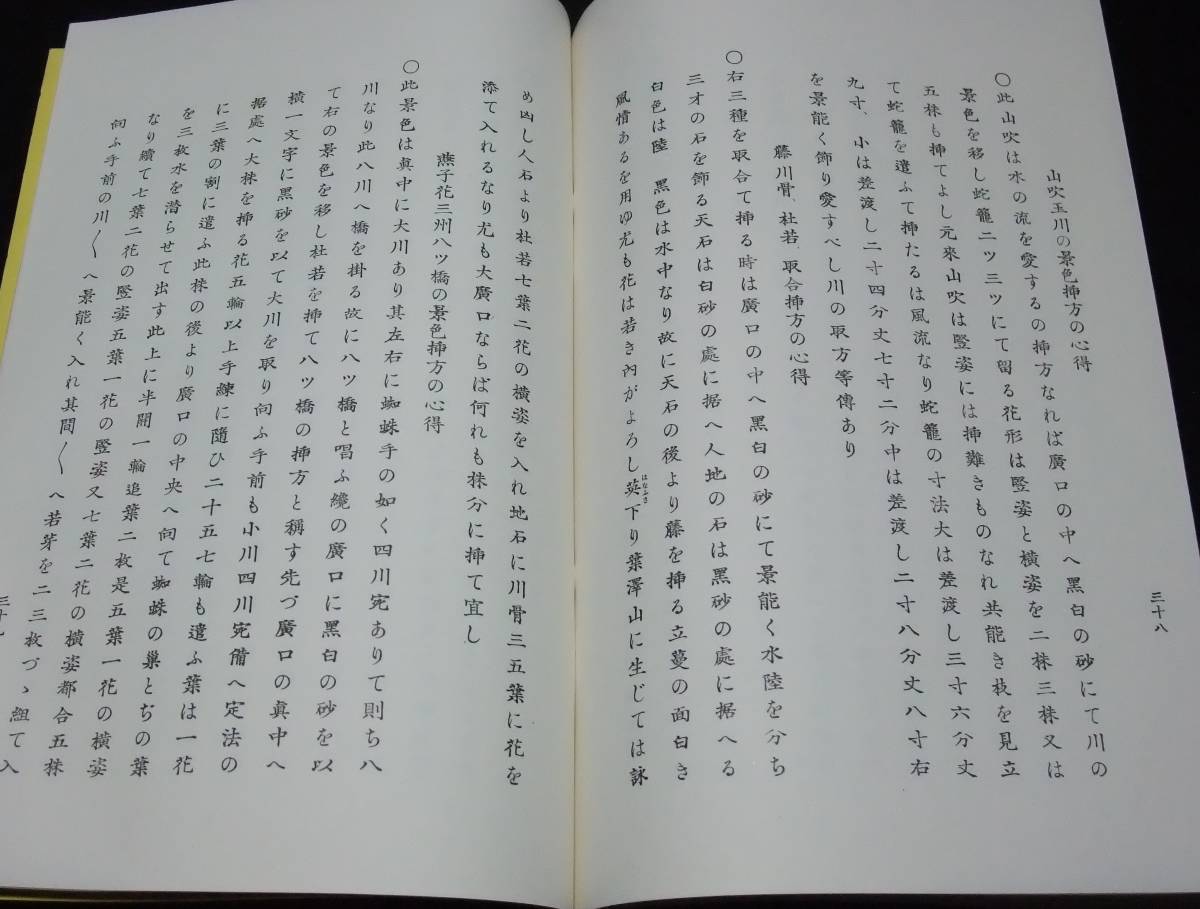 三十八
山吹玉川の景色挿方の心得
〇此山吹は水の流を愛するの挿方なれば廣口の中へ黑白の砂にて川の
景色を移し蛇籠二ツ三ツにて留る花形は竪姿と橫姿を二株三株又は
五株も挿てよし元來山吹は竪姿には挿難きものなれ共能き枝を見立
て蛇籠を遣ふて挿たるは風流なり蛇籠の寸法大は差渡し三寸六分丈
九寸、小は差渡し二寸四分丈七寸二分中は差渡し二寸八分丈八寸右
を景能く飾り愛すべし川の取方等傳あり
藤川骨、杜若、取合挿方の心得
〇右三種を取合て挿る時は廣口の中へ黑白の砂にて景能く水陸を分ち
三才の石を飾る天石は白砂の處に据へ人地の石は黑砂の處に据へる
白色は陸 黑色は水中なり故に天石の後より藤を挿る立蔓の面白き
風情あるを用ゆ尤も花は若き內がよろし英はなふさ下り葉澤山に生じては詠
め凶し人石より杜若七葉二花の橫姿を入れ地石に川骨三五葉に花を
添て入れるなり尤も大廣口ならば何れも株分に挿て宜し
燕子花三州八ツ橋の景色挿方の心得
〇此景色は眞中に大川あり其左右に蜘蛛手の如く四川宛ありて則ち八
川なり此八川へ橋を掛る故に八ツ橋と唱ふ纔の廣口に黑白の砂を以
て右の景色を移し杜若を挿て八ツ橋の挿方と稱す先づ廣口の眞中へ
橫一文字に黑砂を以て大川を取り向ふ手前も小川四川宛備へ定法の
据處へ大株を挿る花五輪以上手練に隨ひ二十五七輪も遣ふ葉は一花
に三葉の割に遣ふ此株の後より廣口の中央へ向て蜘蛛の巢とぢの葉
を三枚水を潛らせて出す此上に半開一輪追葉二枚是五葉一花の橫姿
なり續て七葉二花の竪姿五葉一花の竪姿又七葉二花の橫姿都合五株
向ふ手前の川〱へ景能く入れ其間〱へ若芽を二三枚づゝ組て入
三十九